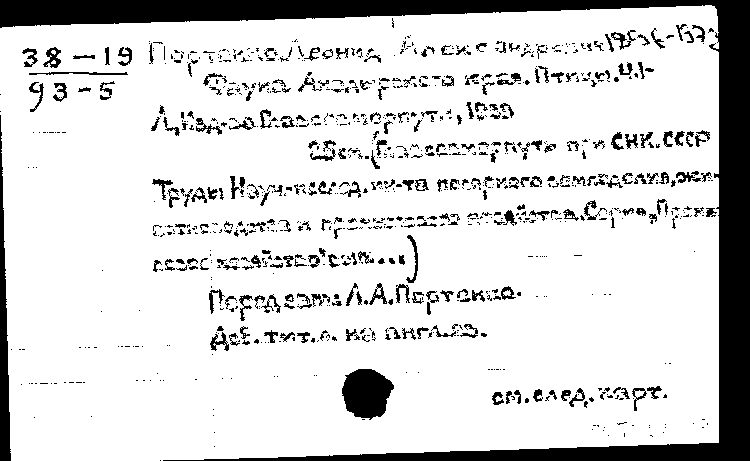 38 — 19
93 - 5
Портенко, Леонид Александрович
Фауна Анадырского края. Птицы. Ч.1-
Л., Изд-во Главсевморпути, 1939
см. (Главсевморпуть при СНК. СССР
Труды Науч.-исслед. ин-та полярного земледелия, жи-
вотноводства и промыслового хозяйства. Серия „Промыс
ловое хозяйство" вып. ...)
Перед загл: Л.А. Портенко.
Доб. тит. л. на англ. яз.
см. след. карт.